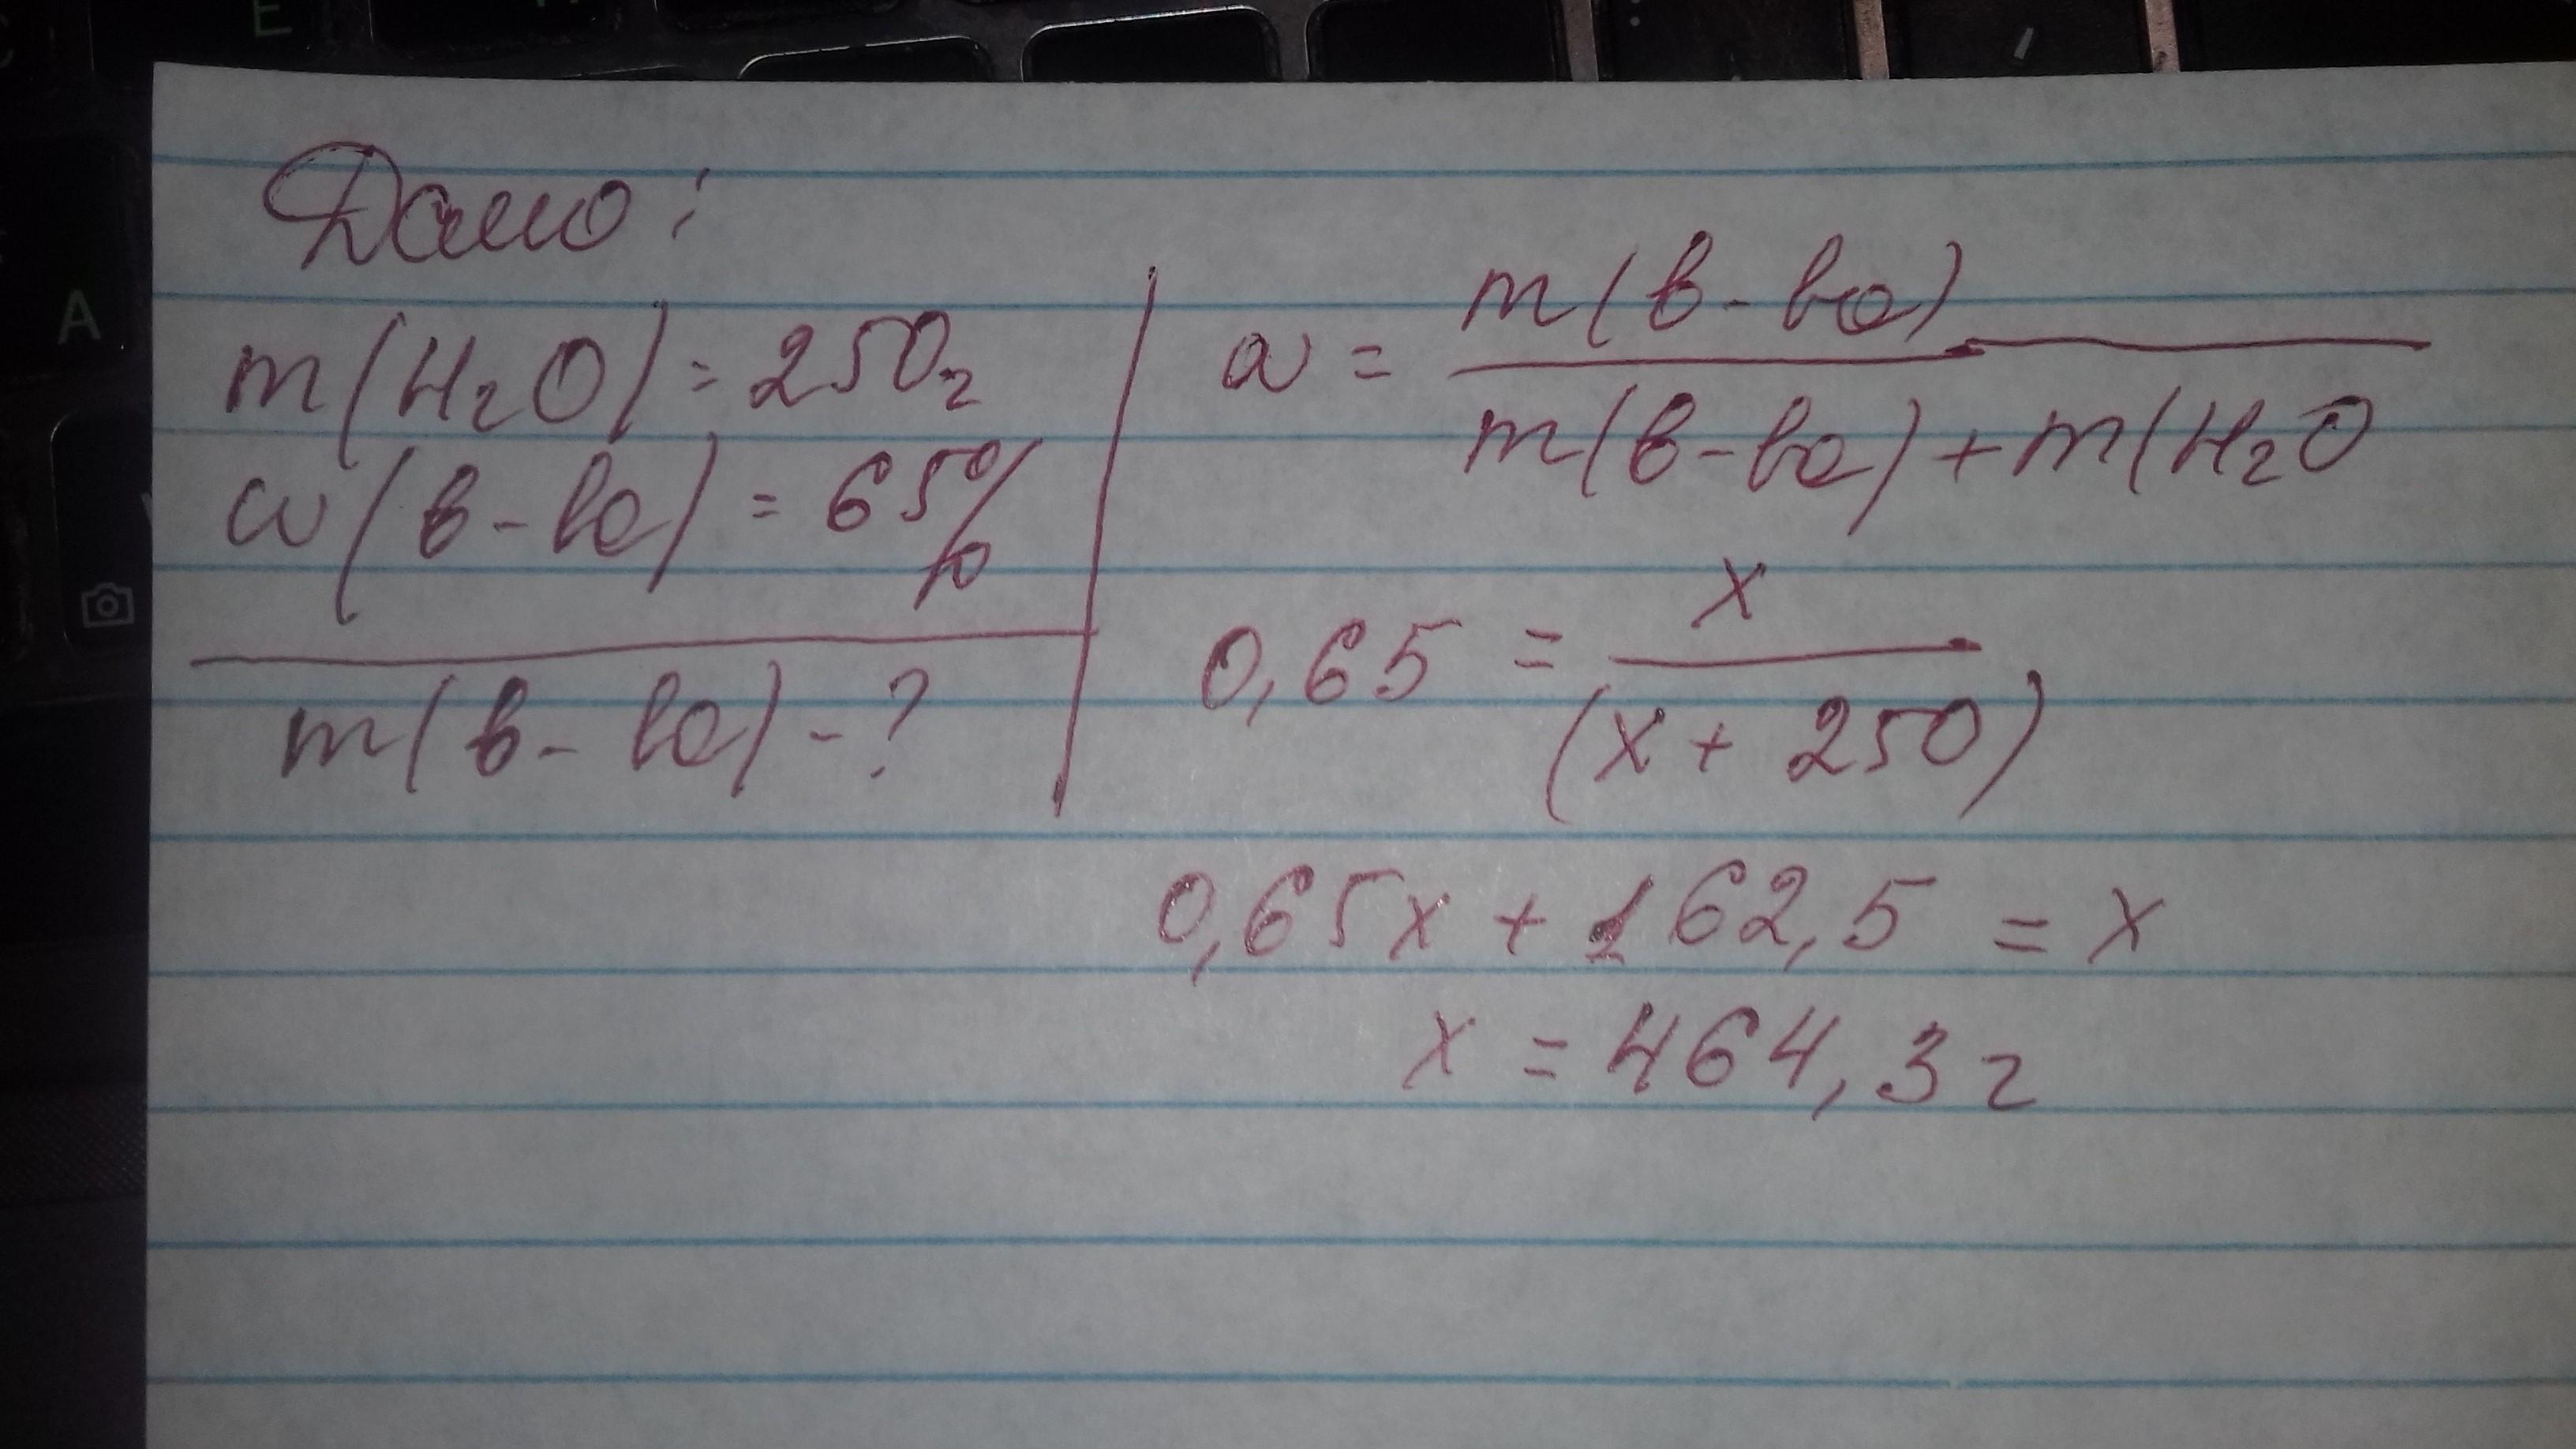 E
A
Дано:
m(H₂O) = 250г
ω(в-ва) = 65%
m(в-ва) - ?
ω = m(в-ва) / m(в-ва) + m(H₂O
0,65 = x / (x + 250)
0,65x + 162,5 = x
x = 464,3 г